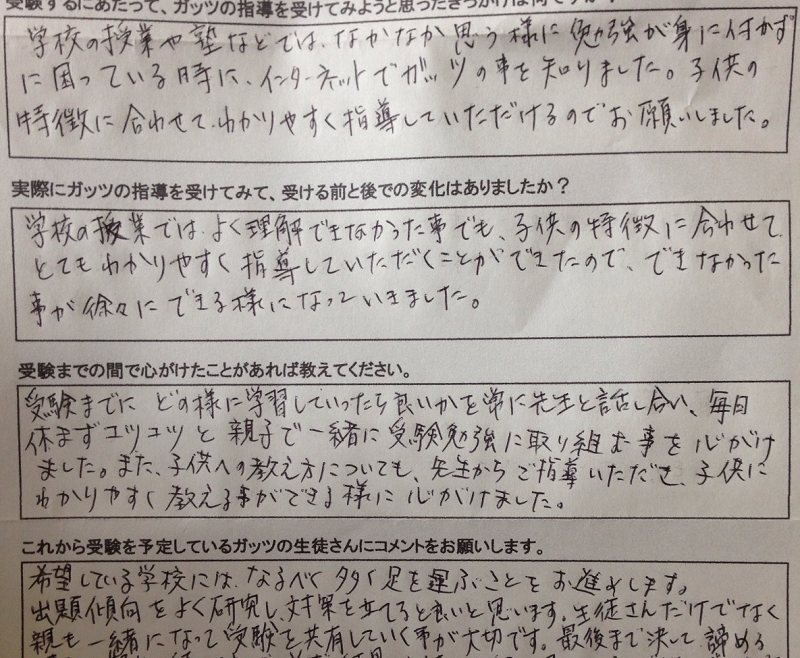 受験するにあたって、ガッツの指導を受けてみようと思ったきっかけは何ですか？
学校の授業や塾などでは、なかなか思う様に勉強が身に付かず
に困っている時に、インターネットでガッツの事を知りました。子供の
特徴に合わせて、わかりやすく指導していただけるのでお願いしました。
実際にガッツの指導を受けてみて、受ける前と後での変化はありましたか？
学校の授業では、よく理解できなかった事でも、子供の特徴に合わせて、
とてもわかりやすく指導していただくことができたので、できなかった
事が徐々にできる様になっていきました。
受験までの間で心がけたことがあれば教えてください。
受験までに どの様に学習していったら良いかを常に先生と話し合い、毎日
休まずコツコツと親子で一緒に受験勉強に取り組む事を心がけ
ました。また、子供への教え方についても、先生からご指導いただき、子供に
わかりやすく教える事ができる様に心がけました。
これから受験を予定しているガッツの生徒さんにコメントをお願いします。
希望している学校には、なるべく多く足を運ぶことをお進めします。
出題傾向をよく研究し、対策を立てると良いと思います。生徒さんだけでなく
親も一緒になって受験を共有していく事が大切です。最後まで決して諦める